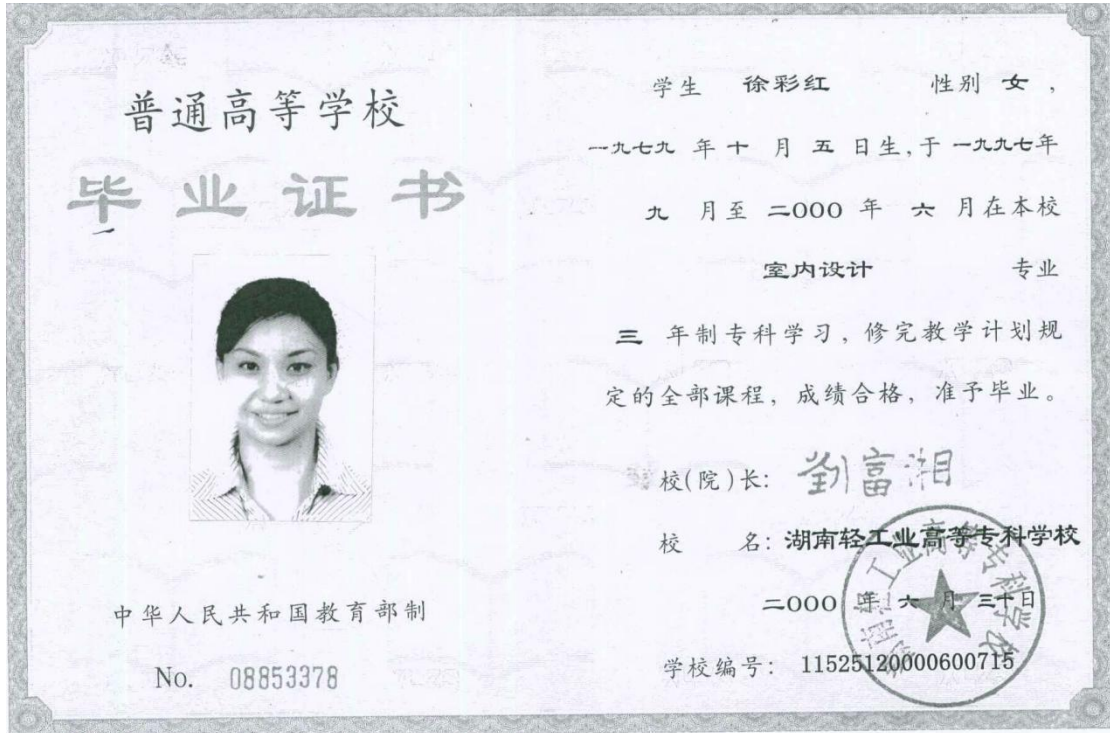 普通高等学校
毕业证书
中华人民共和国教育部制
No. 08853378
学生 徐彩红 性别 女，
一九七九 年 十 月 五 日生，于 一九九七年
九 月至 二000 年 六 月在本校
室内设计 专业
三 年制专科学习，修完教学计划规
定的全部课程，成绩合格，准予毕业。
校(院)长: 劉富湘
校 名: 湖南轻工业高等专科学校
二000 年 六 月 三十日
学校编号: 11525120000600715
湖南轻工业高等专科学校